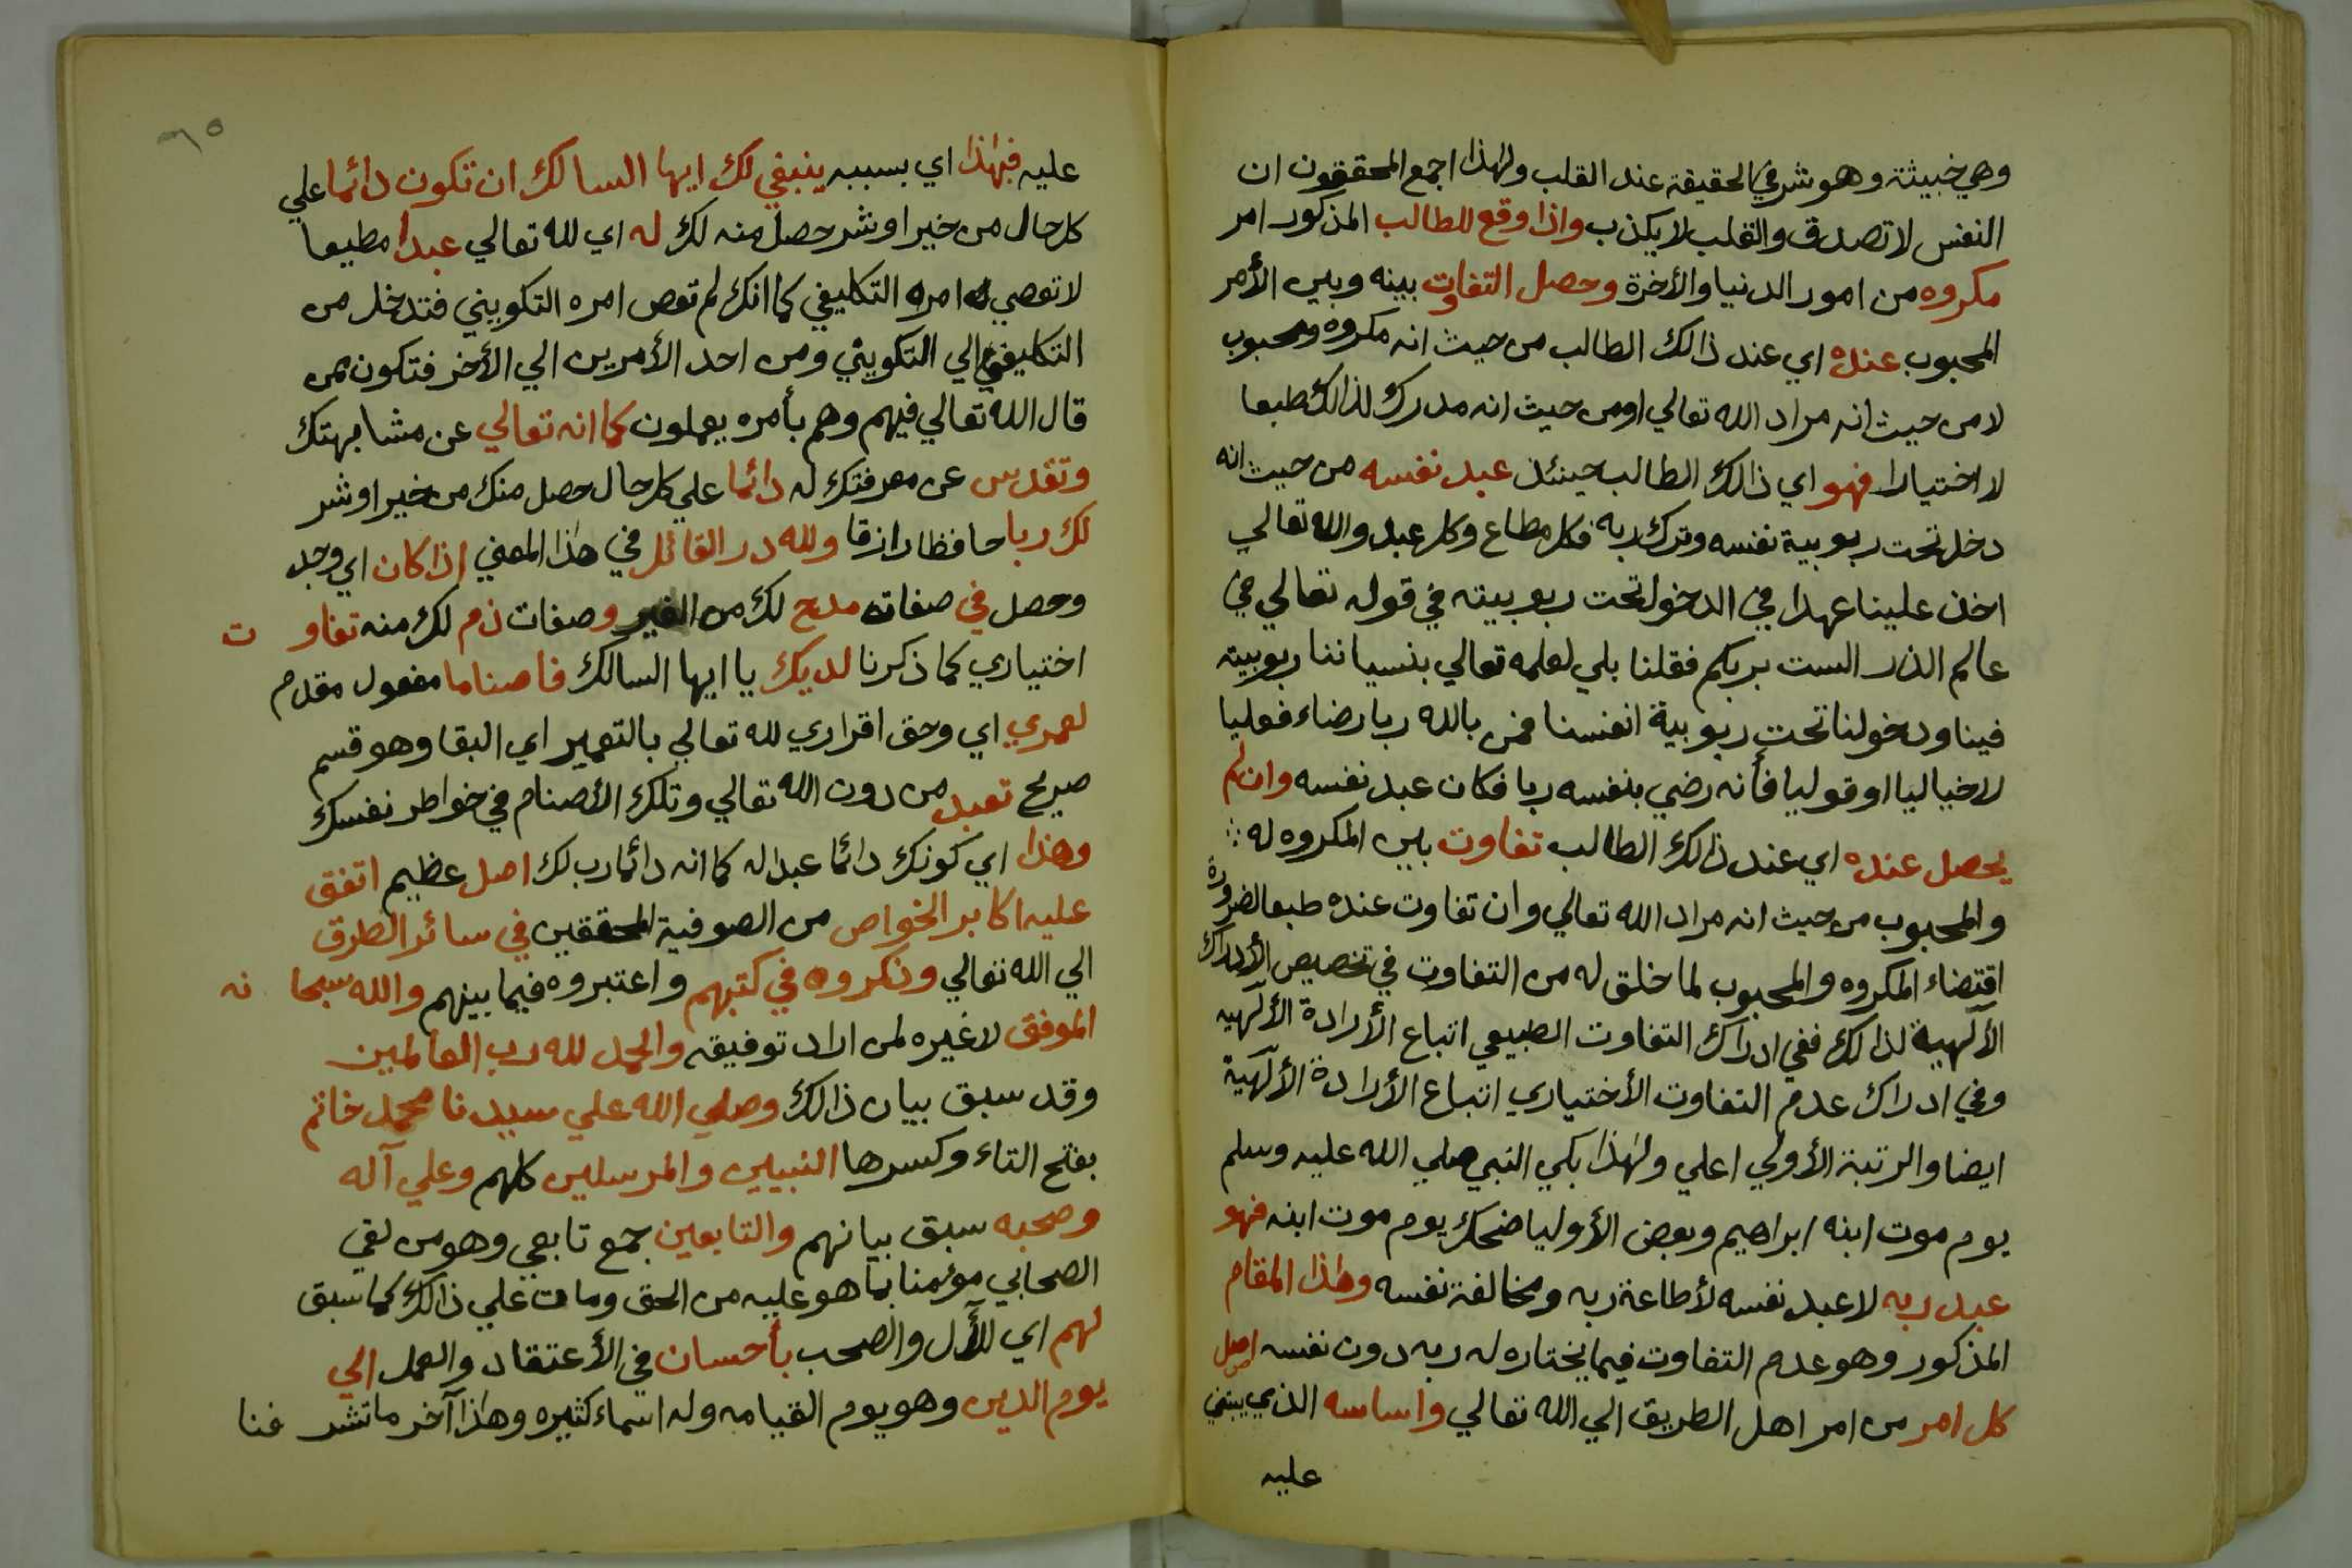 وهي خبيثة وهو شر في الحقيقة عند القلب ولهذا اجمع المحققون ان
النفس لا تصدق والقلب لا يكذب واذا وقع للطالب المذكور امر
مكروه من امور الدنيا والأخرة وحصل التفاوت بينه وبين الأمر
المحبوب عنده اي عند ذالك الطالب من حيث انه مكروه ومحبوب
لا من حيث انه مراد الله تعالي او من حيث انه مدرك لذالك طبعا
لا اختيارا فهو اي ذالك الطالب حينئذ عبد نفسه من حيث انه
دخل تحت ربوبية نفسه وترك ربه فكل مطاع وكل عبد والله تعالي
اخذ علينا عهدا في الدخول تحت ربوبيته في قوله تعالي في
عالم الذر الست بربكم فقلنا بلي لعلمه تعالي بنسياننا ربوبيته
فينا ودخولنا تحت ربوبية انفسنا فمن بالله ربا رضاء فعليا
لا خياليا او قوليا فأنه رضي بنفسه ربا فكان عبد نفسه وان لم
يحصل عنده اي عند ذالك الطالب تفاوت بين المكروه له
والمحبوب من حيث انه مراد الله تعالي وان تفاوت عنده طبعا لضرورة
اقتضاء المكروه والمحبوب لما خلق له من التفاوت في تخصيص الأدراك
الآلهية لذالك ففي ادراك التفاوت الطبيعي اتباع الأرادة الألهيه
وفي ادراك عدم التفاوت الأختياري اتباع الأرادة الألهية
ايضا والرتبة الأولي اعلي ولهذا بكي النبي صلي الله عليه وسلم
يوم موت ابنه ابراهيم وبعض الأوليا ضحك يوم موت ابنه فهو
عبد ربه لا عبد نفسه لأطاعة ربه ومخالفة نفسه وهذا المقام
المذكور وهو عدم التفاوت فيما يختاره له ربه دون نفسه اصل
كل امر من امر اهل الطريق الي الله تعالي واساسه الذي يبتني
عليه
٦٥
عليه فبهذا اي بسببه ينبغي لك ايها السالك ان تكون دائما علي
كل حال من خير او شر حصل منه لك له اي لله تعالي عبدا مطيعا
لا تعصي امره التكليفي كما انك لم تعص امره التكويني فتدخل من
التكليفي الي التكويني ومن احد الأمرين الي الأخر فتكون ممن
قال الله تعالي فيهم وهم بأمره يعملون كما انه تعالي عن مشابهتك
وتقدس عن معرفتك له دائما علي كل حال حصل منك من خير او شر
لك ربا حافظا رازقا ولله در القائل في هذا المعني اذا كان اي وجد
وحصل في صفات مدح لك من الغير وصفات ذم لك منه تفاوت
اختياري كما ذكرنا لديك يا ايها السالك فاصناما مفعول مقدم
لعمري اي وحق اقراري لله تعالي بالتعمير اي البقا وهو قسم
صريح تعبد من دون الله تعالي وتلك الأصنام في خواطر نفسك
وهذا اي كونك دائما عبدا له كما انه دائما رب لك اصل عظيم اتفق
عليه اكابر الخواص من الصوفية المحققين في سائر الطرق
الي الله تعالي وذكروه في كتبهم واعتبروه فيما بينهم والله سبحانه
الموفق لا غيره لمن اراد توفيقه والحمد لله رب العالمين
وقد سبق بيان ذالك وصلي الله علي سيدنا محمد خاتم
بفتح التاء وكسرها النبيين والمرسلين كلهم وعلي آله
وصحبه سبق بيانهم والتابعين جمع تابعي وهو من لقي
الصحابي مؤمنا بما هو عليه من الحق ومات علي ذالك كما سبق
لهم اي للأل والصحب بأحسان في الأعتقاد والعمل الي
يوم الدين وهو يوم القيامه وله اسماء كثيره وهذا آخر ما تشرفنا